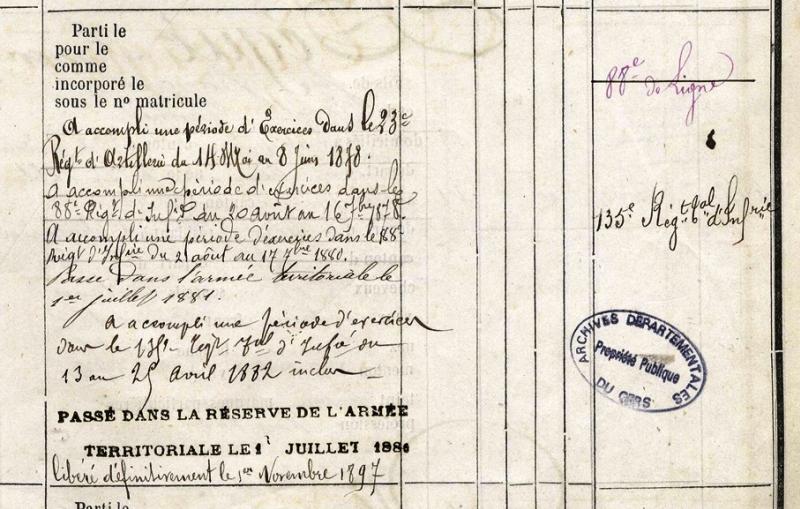 Parti le
pour le
comme
incorporé le
sous le nº matricule
A accompli une période d'Exercices dans le 23e
Régt d'Artillerie du 14 Mai au 8 Juin 1878.
a accompli une période d'exercices dans le
88e Régt d'Infie du 20 août au 16 7bre 1878.
A accompli une période d'exercices dans le 88e
Régt d'Infie du 21 août au 17 7bre 1880.
Passé dans l'armée territoriale le
1er juillet 1881.
A accompli une période d'exercices
dans le 135e Régt Tal d'Infie du
13 au 25 Avril 1882 inclus
PASSÉ DANS LA RÉSERVE DE L'ARMÉE
TERRITORIALE LE 1r JUILLET 1886
libéré définitivement le 1er Novembre 1897
Parti le
88e de Ligne
135e Régt tal d'Infrie
ARCHIVES DÉPARTEMENTALES
Propriété Publique
DU GERS